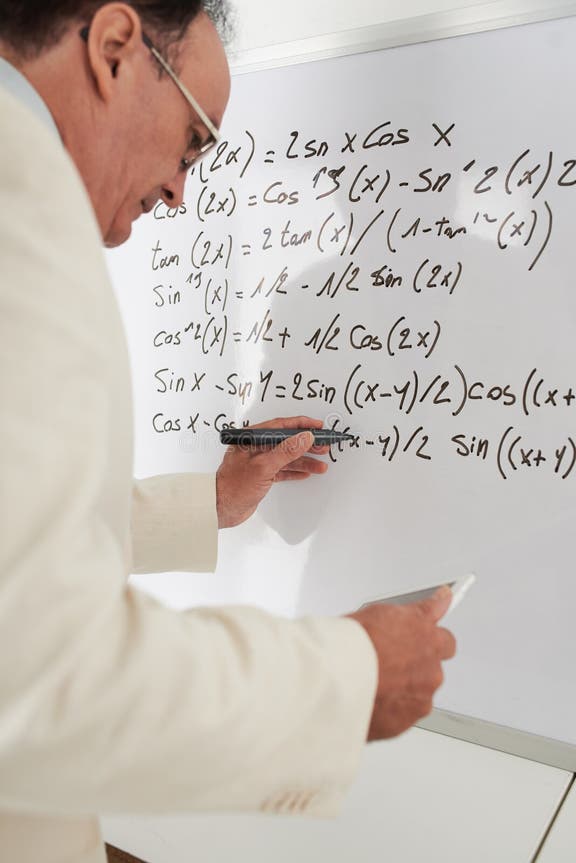 (2x) = 2sn x Cos X
Cos (2x) = Cos 19 (x) - Sn'2 (x) 2
tan (2x) = 2 tan (x) / (1-tan'2 (x))
Sin'9 (x) = 1/2 - 1/2 Sin (2x)
cos^2 (x) = 1/2 + 1/2 Cos (2x)
Sin X - Syn Y = 2 Sin ((x-y)/2) cos ((x+
Cos X - Cos y ((x-y)/2 Sin ((x+y)